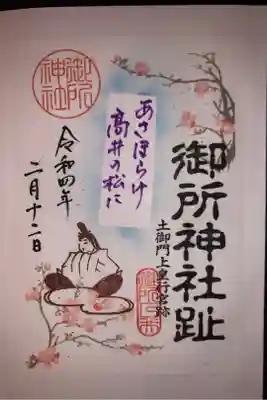 御所神社趾
土御門上皇行宮跡
あさぼらけ
高井の松に
令和四年
二月十二日
御所神社